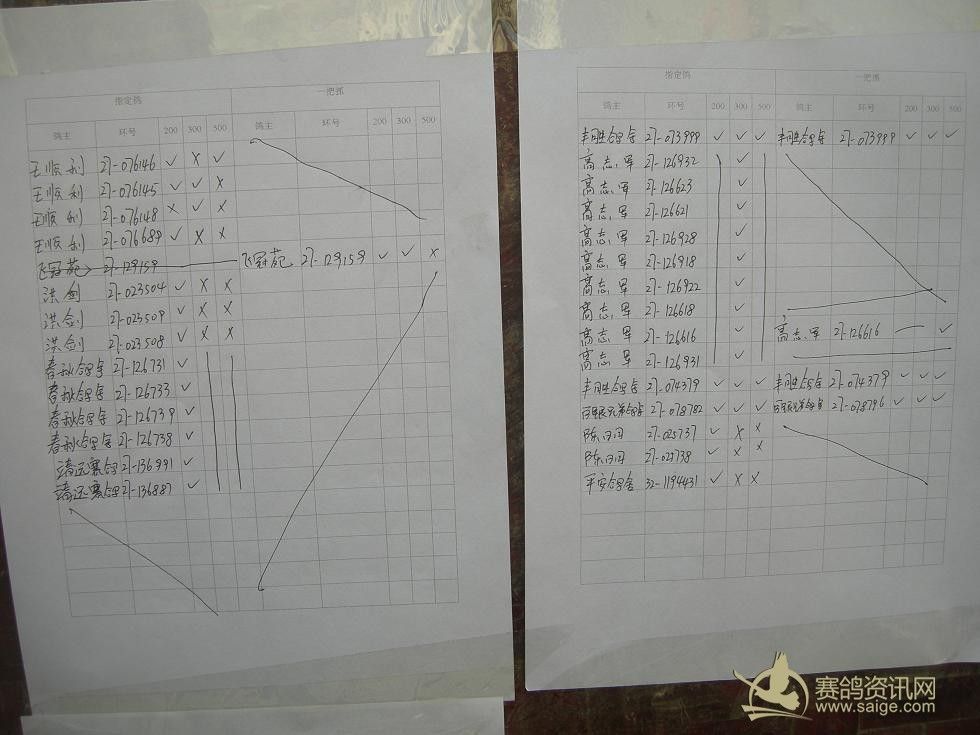 指定鸽 一把抓
鸽主 环号 200 300 500 鸽主 环号 200 300 500
王顺利 27-076146 ✓ × ✓
王顺利 27-076145 ✓ ✓ ×
王顺利 27-076148 × ✓ ×
王顺利 27-076689 ✓ × ×
飞冠苑 27-129159 飞冠苑 27-129159 ✓ ✓ ×
洪剑 27-023504 ✓ × ×
洪剑 27-023509 ✓ × ×
洪剑 27-023508 ✓ × ×
春秋鸽舍 27-126731 ✓
春秋鸽舍 27-126733 ✓
春秋鸽舍 27-126739 ✓
春秋鸽舍 27-126738 ✓
靖远赛鸽 27-136991 ✓
靖远赛鸽 27-136887 ✓
指定鸽 一把抓
鸽主 环号 200 300 500 鸽主 环号 200 300 500
丰胜鸽舍 27-073999 ✓ ✓ ✓ 丰胜鸽舍 27-073999 ✓ ✓ ✓
高志军 27-126932 ✓
高志军 27-126623 ✓
高志军 27-126621 ✓
高志军 27-126928 ✓
高志军 27-126918 ✓
高志军 27-126922 ✓
高志军 27-126618 ✓
高志军 27-126616 ✓ 高志军 27-126616 ✓
高志军 27-126931 ✓
鸽舍 27-074379 ✓ ✓ ✓ 鸽舍 27-074379 ✓ ✓ ✓
兄弟鸽舍 27-078782 ✓ ✓ ✓ 27-078796 ✓ ✓ ✓
27-025737 ✓ × ×
27-025738 ✓ × ×
平安鸽舍 32-1194431 ✓ × ×
赛鸽资讯网
www.saige.com